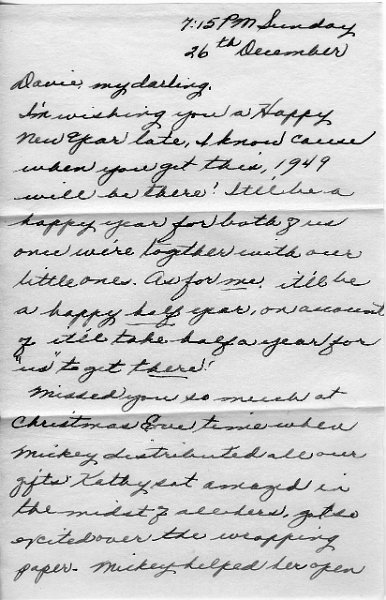 7:15 PM Sunday
26th December
Davie, my darling,
I'm wishing you a Happy
New Year late, I know cause
when you get this, 1949
will be there! It'll be a
happy year for both of us
once we're together with our
little ones. As for me, it'll be
a happy half year, on account
of it'll take half a year for
"us" to get there!
Missed you so much at
Christmas Eve time when
Mickey distributed all our
gifts. Kathy sat amazed in
the midst of all hers, got so
excited over the wrapping
paper - Mickey helped her open